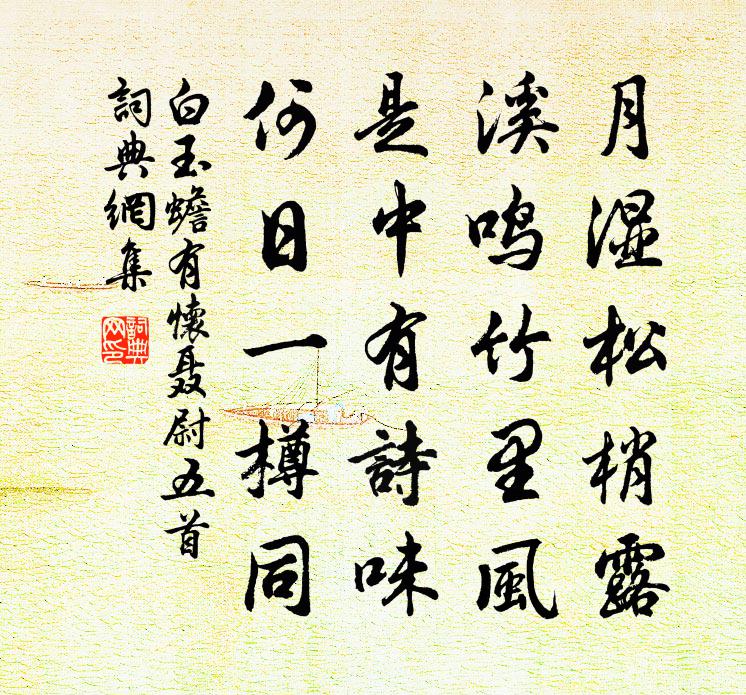 月湿松梢露
溪鸣竹里風
是中有詩味
何日一樽同
白玉蟾有懷聂尉五首
詞典網集
詞典
网印